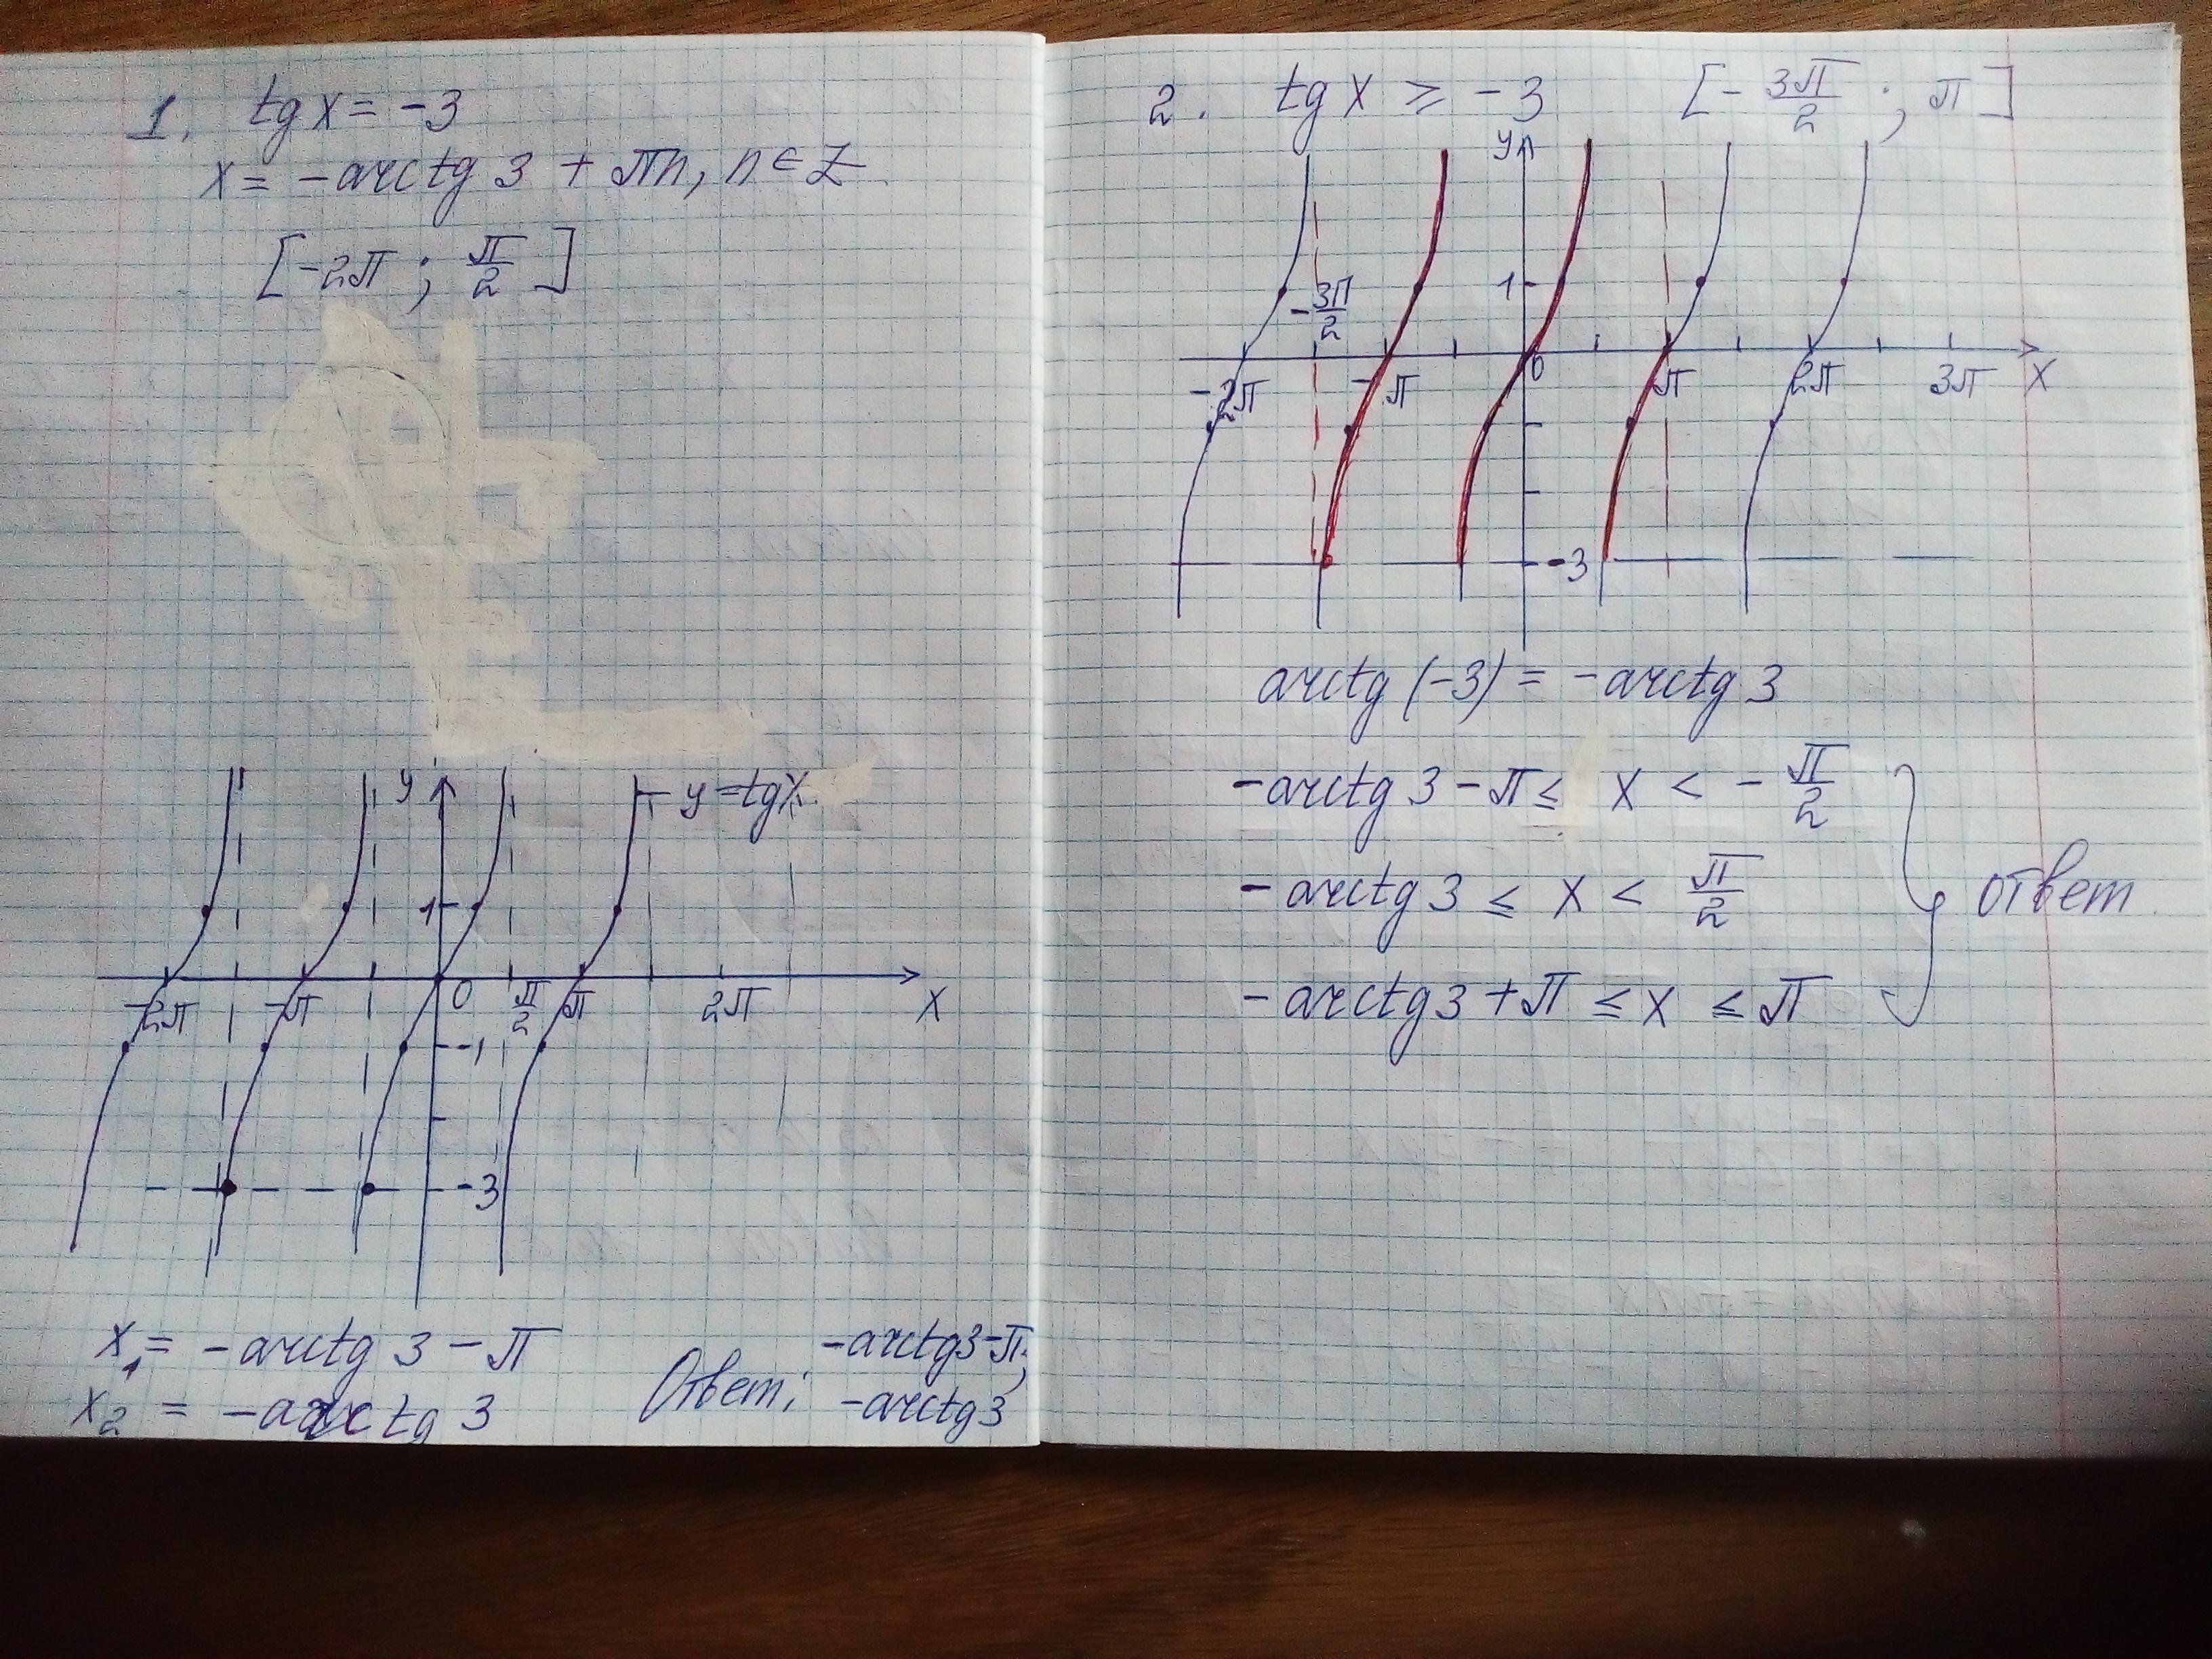 1. tg x = -3
x = -arctg 3 + πn, n ∈ Z
[-2π ; π/2]
y
y = tg x
1
-2π -π 0 π/2 π 2π x
-1
-3
x₁ = -arctg 3 - π
x₂ = -arctg 3
Ответ: -arctg3-π;
-arctg3
2. tg x ⩾ -3 [-3π/2 ; π]
y
1
-3π/2
-2π -π 0 π 2π 3π x
-3
arctg (-3) = -arctg 3
-arctg 3 - π ≤ x < -π/2
-arctg 3 ≤ x < π/2
ответ
-arctg 3 + π ≤ x ≤ π